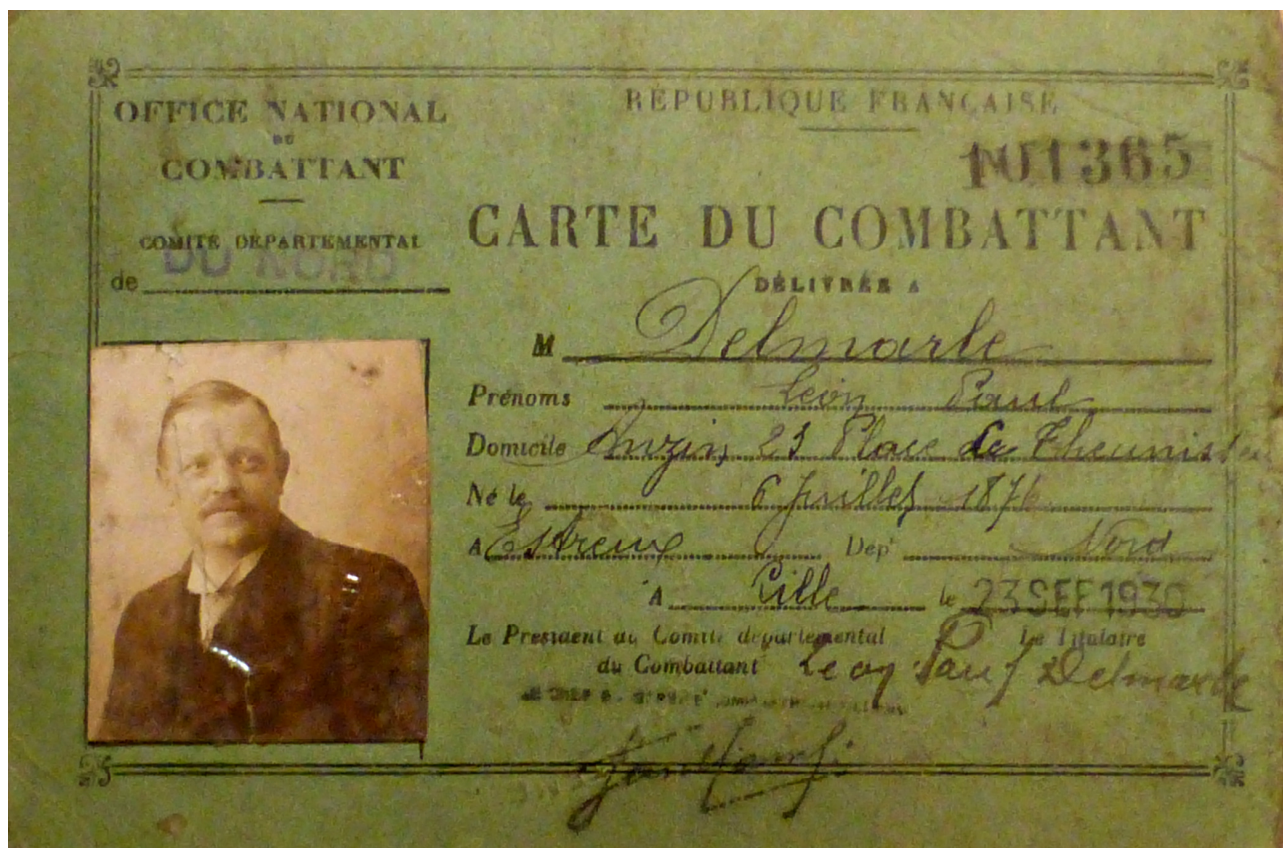 OFFICE NATIONAL
DU
COMBATTANT
COMITÉ DÉPARTEMENTAL
de DU NORD
RÉPUBLIQUE FRANÇAISE
101365
CARTE DU COMBATTANT
DÉLIVRÉE A
M Delmarle
Prénoms Léon Paul
Domicile Anzin, 23 Place de Theunissen
Né le 6 Juillet 1876
A Estreux Dep^t Nord
A Lille le 23 SEP 1930
Le President du Comité départemental Le Titulaire
du Combattant Leon Paul Delmarle